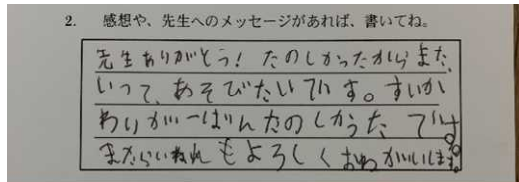 2. 感想や、先生へのメッセージがあれば、書いてね。
先生ありがとう! たのしかったからまた、
いって、あそびたいです。すいか
わりが一ばんたのしかったです。
またらいねんもよろしくおねがいします。